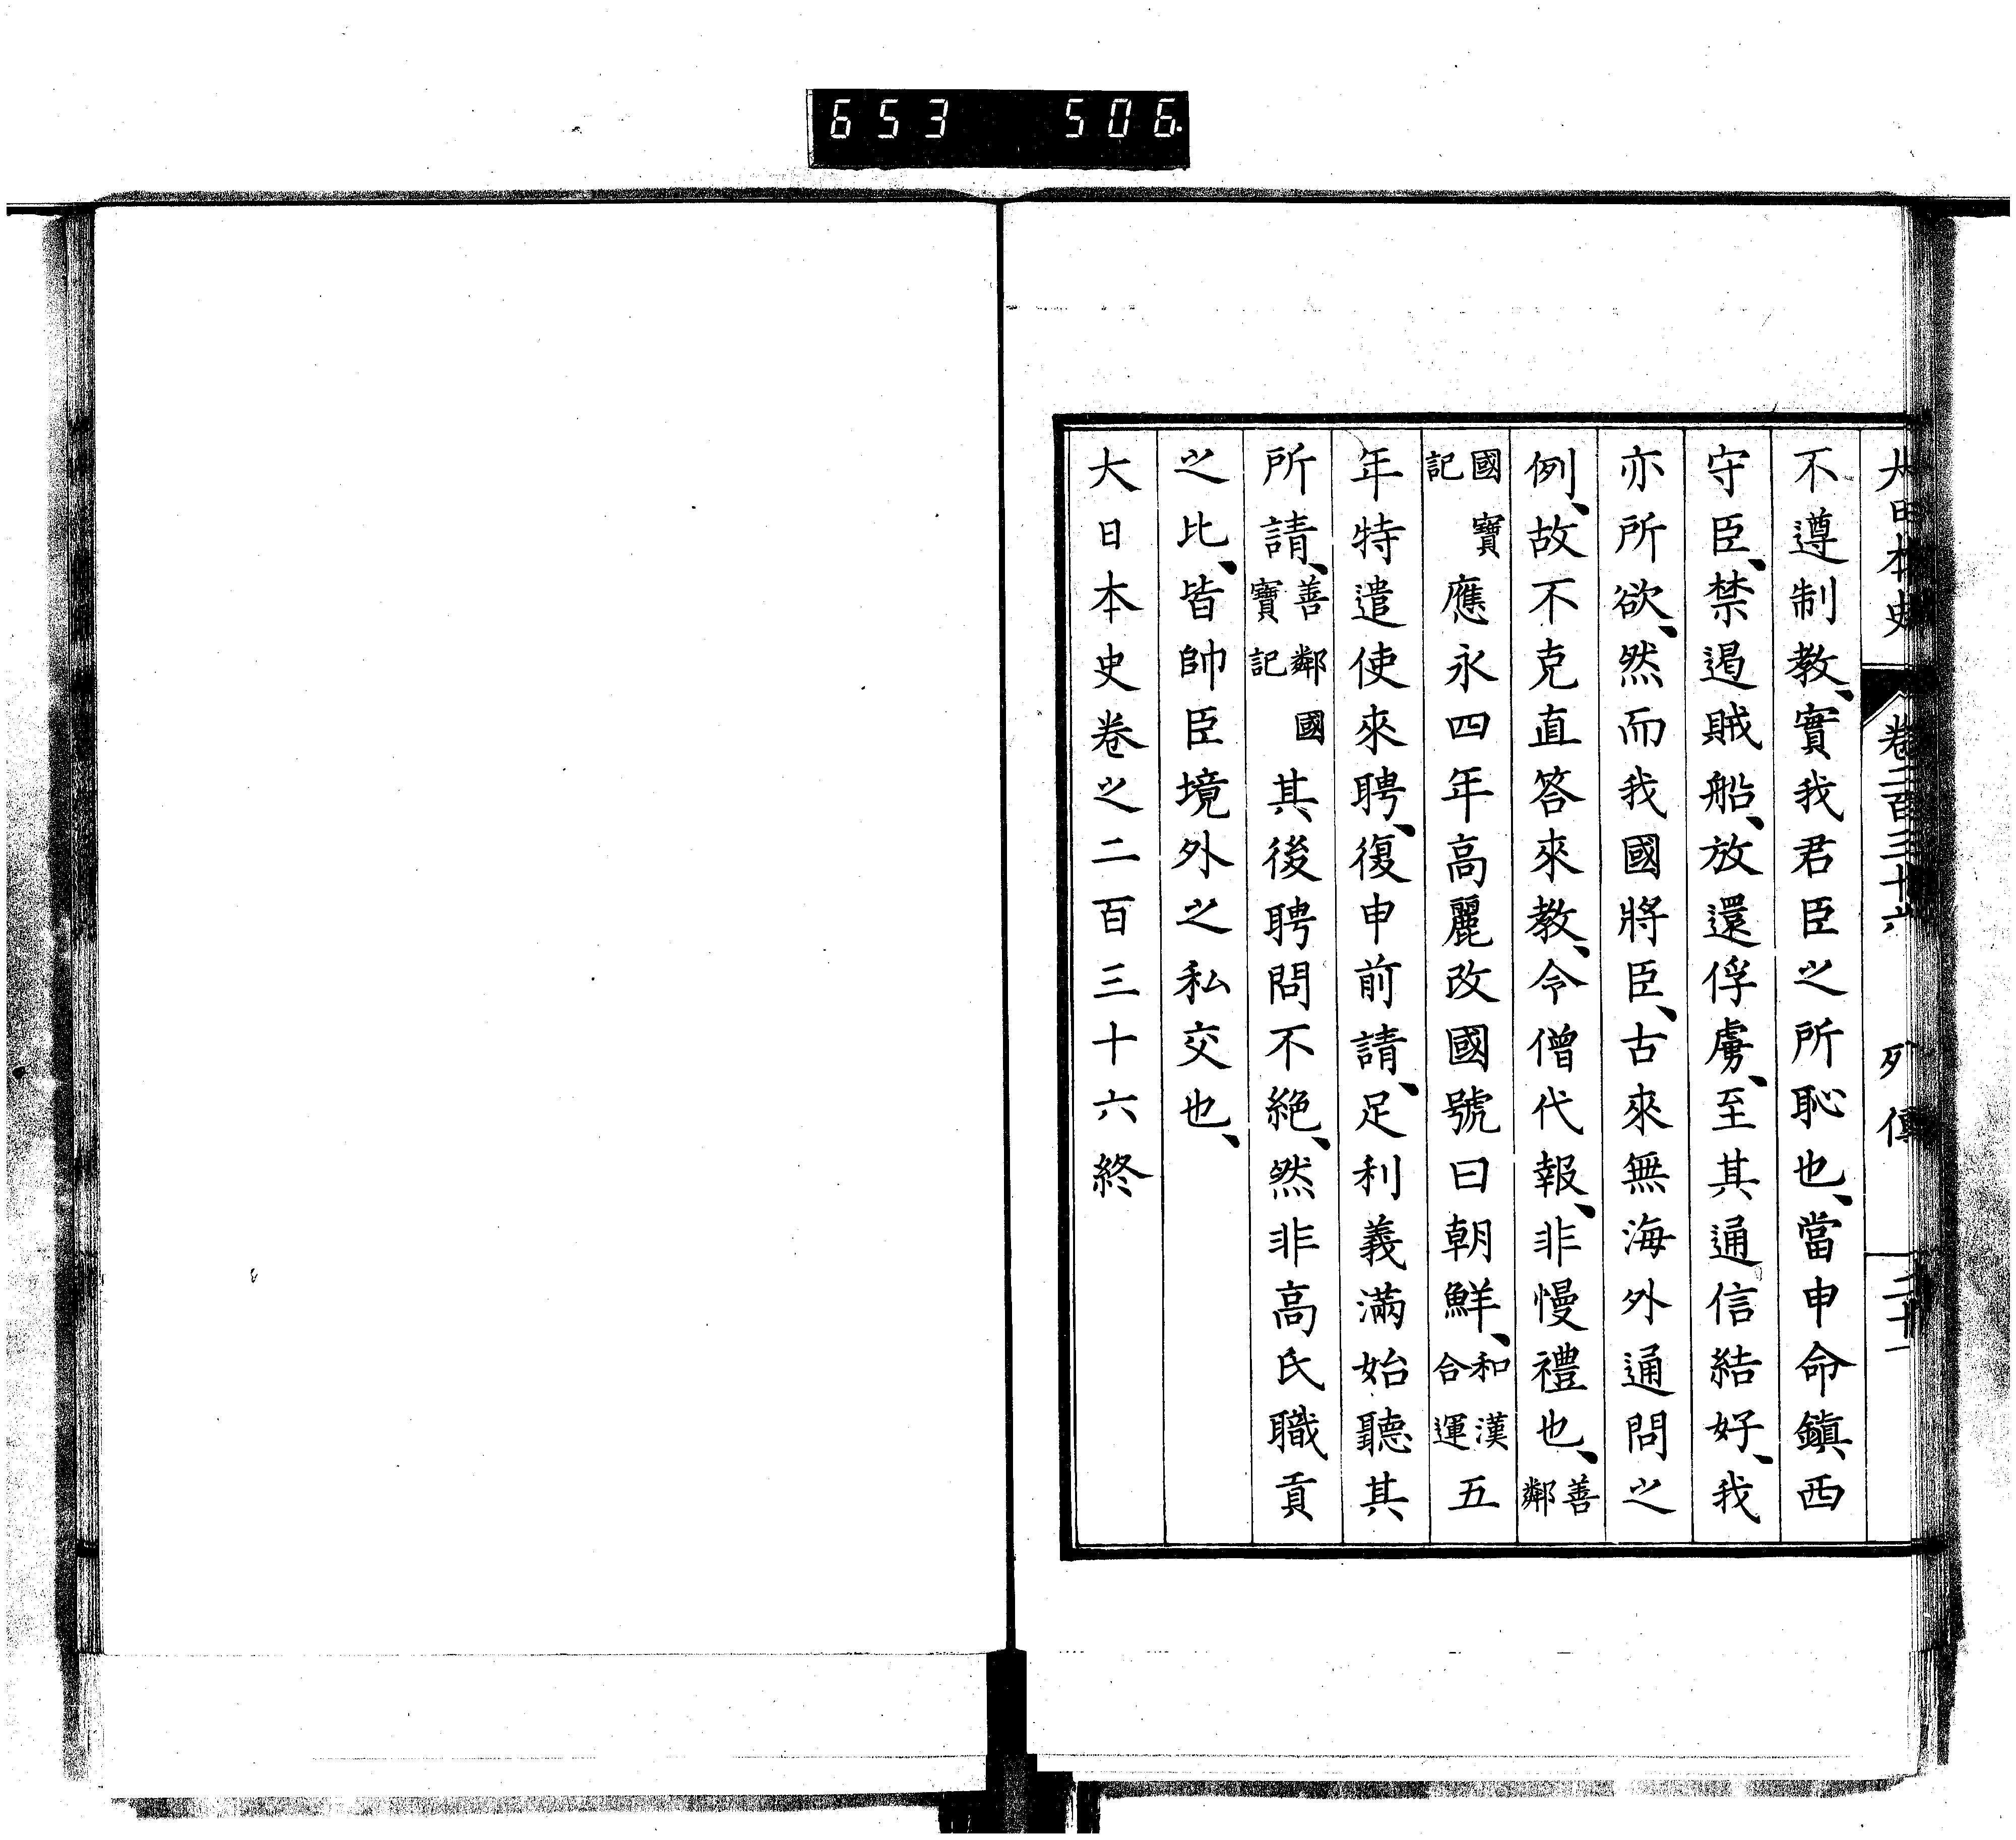 653 506.
大日本史 卷二百三十六 列傳 二十一
不遵制教、實我君臣之所恥也、當申命鎭西
守臣、禁遏賊船、放還俘虜、至其通信結好、我
亦所欲、然而我國將臣、古來無海外通問之
例、故不克直答來教、令僧代報、非慢禮也、善鄰
國寶記 應永四年高麗改國號曰朝鮮、和漢合運 五
年特遣使來聘、復申前請、足利義滿始聽其
所請、善鄰國寶記 其後聘問不絶、然非高氏職貢
之比、皆帥臣境外之私交也、
大日本史卷之二百三十六終